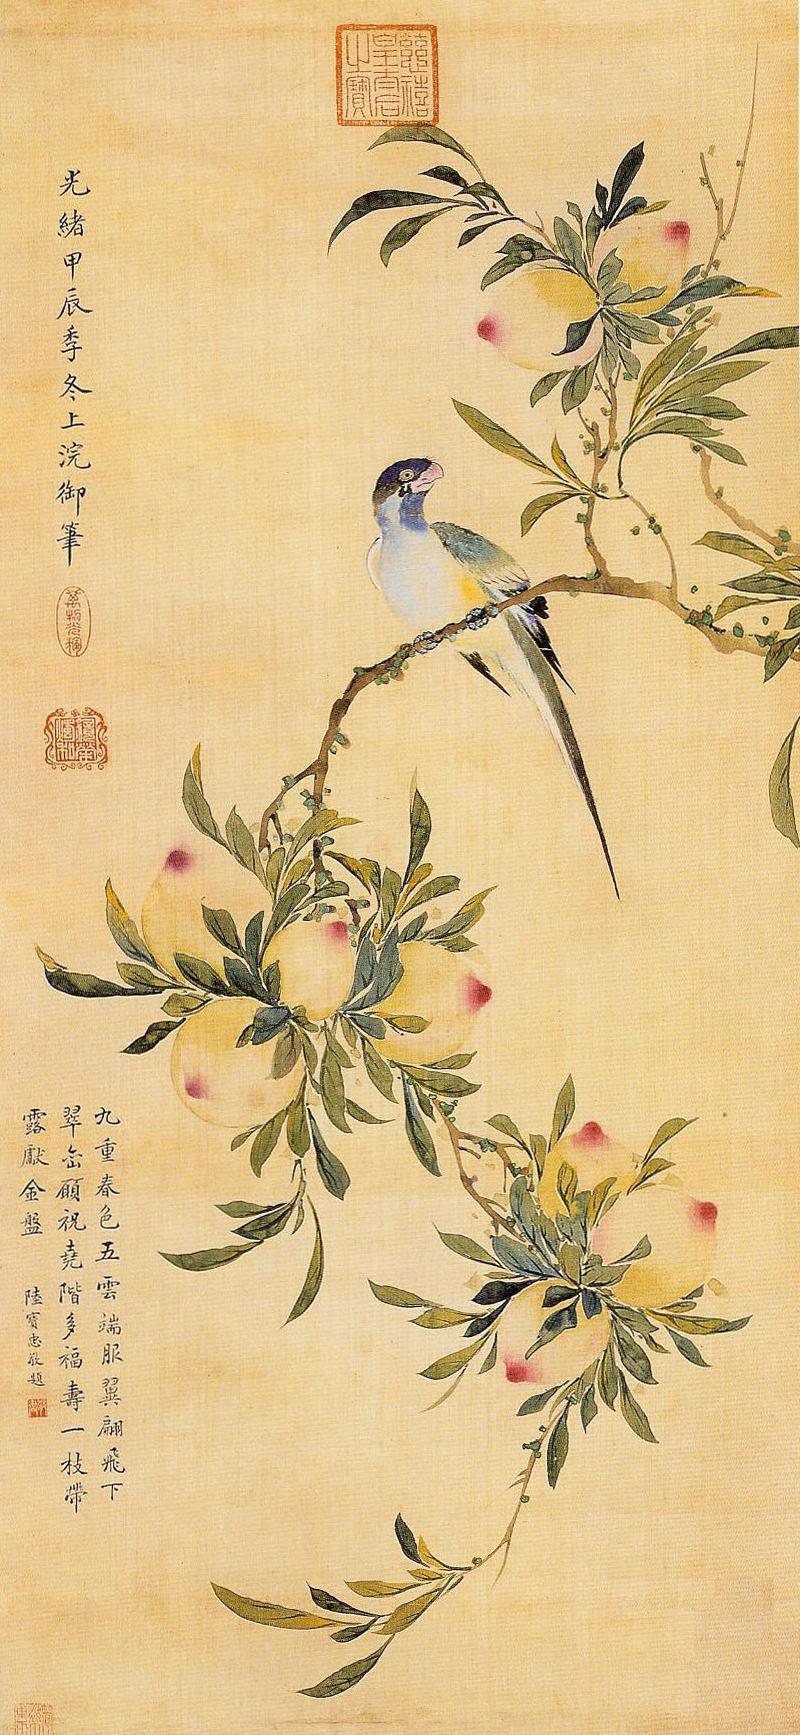 慈禧
皇太后
之寶
光緒甲辰季冬上浣御筆
九重春色五雲端服翼翩飛下
翠峦願祝堯階多福壽一枝帶
露獻金盤
陸寶忠敬題